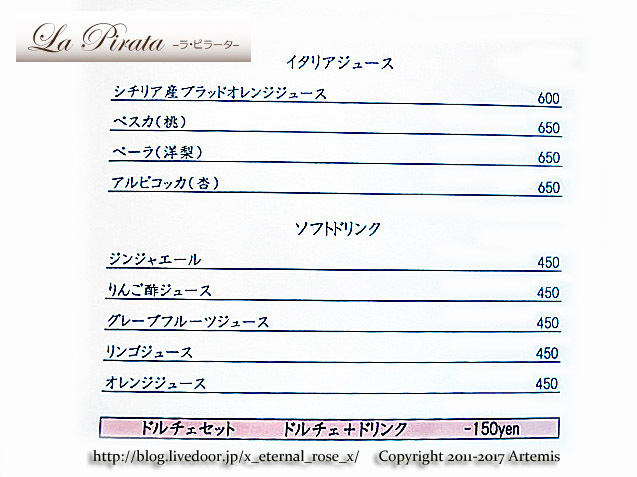 La Pirata –ラ・ピラータ–
イタリアジュース
シチリア産ブラッドオレンジジュース 600
ペスカ(桃) 650
ペーラ(洋梨) 650
アルビコッカ(杏) 650
ソフトドリンク
ジンジャエール 450
りんご酢ジュース 450
グレープフルーツジュース 450
リンゴジュース 450
オレンジジュース 450
ドルチェセット ドルチェ+ドリンク -150yen
http://blog.livedoor.jp/x_eternal_rose_x/ Copyright 2011-2017 Artemis